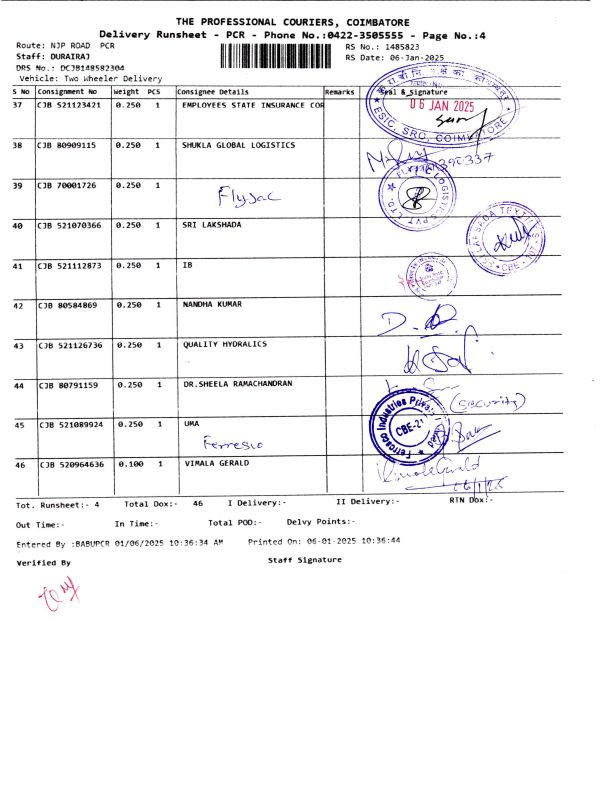 THE PROFESSIONAL COURIERS, COIMBATORE
Delivery Runsheet - PCR - Phone No.:0422-3505555 - Page No.:4
Route: NJP ROAD PCR
RS No.: 1485823
Staff: DURAIRAJ
RS Date: 06-Jan-2025
DRS No.: DCJB148582304
Vehicle: Two Wheeler Delivery
S No Consignment No Weight PCS Consignee Details Remarks Seal & Signature
37 CJB 521123421 0.250 1 EMPLOYEES STATE INSURANCE COR
06 JAN 2025
ESIC, SRO, COIMBATORE
38 CJB 80909115 0.250 1 SHUKLA GLOBAL LOGISTICS
39 CJB 70001726 0.250 1
Flyjac
40 CJB 521070366 0.250 1 SRI LAKSHADA
41 CJB 521112873 0.250 1 IB
42 CJB 80584869 0.250 1 NANDHA KUMAR
43 CJB 521126736 0.250 1 QUALITY HYDRALICS
44 CJB 80791159 0.250 1 DR.SHEELA RAMACHANDRAN
(Security)
45 CJB 521089924 0.250 1 UMA
Ferresco
CBE-21
46 CJB 520964636 0.100 1 VIMALA GERALD
Tot. Runsheet:- 4 Total Dox:- 46 I Delivery:- II Delivery:- RTN Dox:-
Out Time:- In Time:- Total POD:- Delvy Points:-
Entered By :BABUPCR 01/06/2025 10:36:34 AM Printed On: 06-01-2025 10:36:44
Verified By Staff Signature